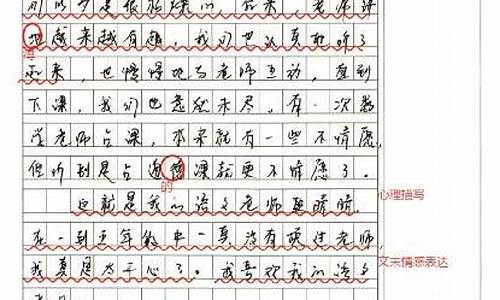 可以多是很枯燥的，后来，老师讲
地越来越有趣，我们也认真地听了
得
起来，也慢慢地与老师互动，直到
下课，我们也意犹未尽，有一次数
学老师占课，本来就有一些不情愿，
但听到是占语课就更不情愿了。
的
这就是我的语文老师
心理描写
在一到五年级中一直没有换过老师，
文末情意表达
我真是太开心了。我喜欢我的语文